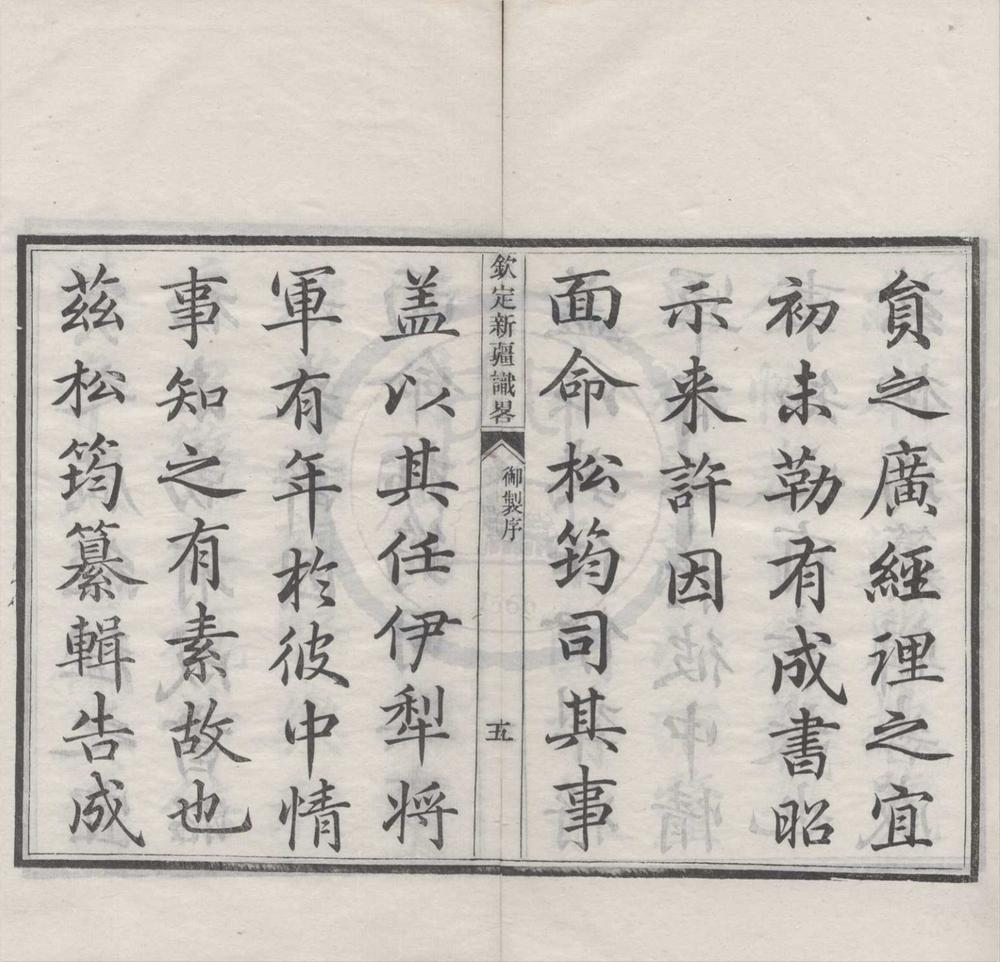 貟之廣經理之宜
初未勒有成書昭
示来許因
面命松筠司其事
欽定新疆識畧
御製序
盖以其任伊犁将
軍有年於彼中情
事知之有素故也
茲松筠纂輯告成